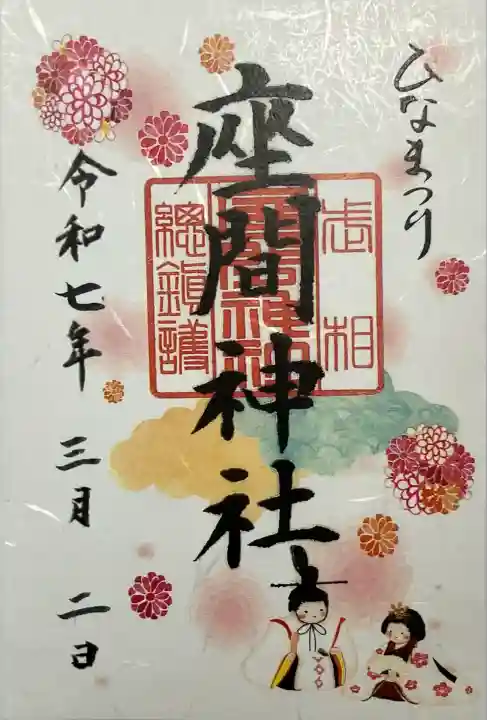 ひなまつり
座間神社
相武
座間神社
總鎮護
令和七年 三月 二日